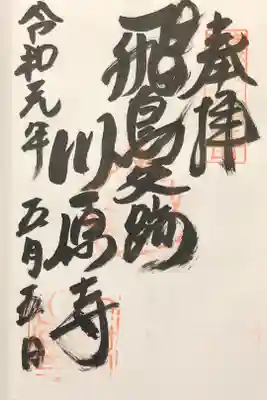 奉拝
飛鳥史跡
川原寺
令和元年
五月五日